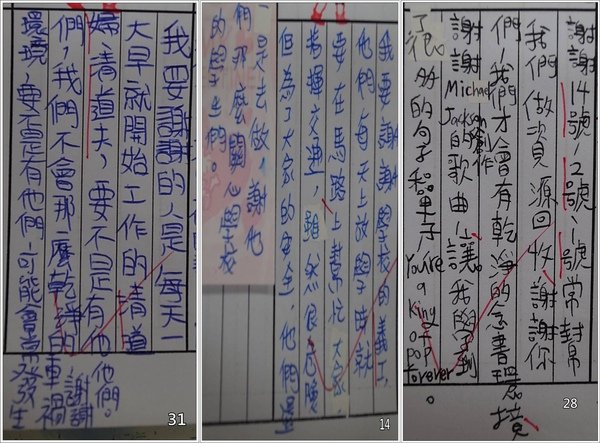 我要謝謝的人是每天一
大早就開始工作的清道
婦、清道夫,要不是有他
們,我們不會那麼乾淨的
環境,要不是有他們,可能會常發生
車禍
謝謝
他們。
31
我要謝謝學校的義工,
他們每天上放學時就
要在馬路上幫忙大家
指揮交通,雖然很危險
但為了大家的安全,他們還
是去做,謝他
們那麼關心學校
的學生們。
14
謝謝14號、12號、1號常幫
我們做資源回收,謝謝你
們,我們才會有乾淨的念書環境,
謝謝Michael Jackson創作的歌曲,讓我學到
了很多的句子和單子,You're a King of pop forever。
28